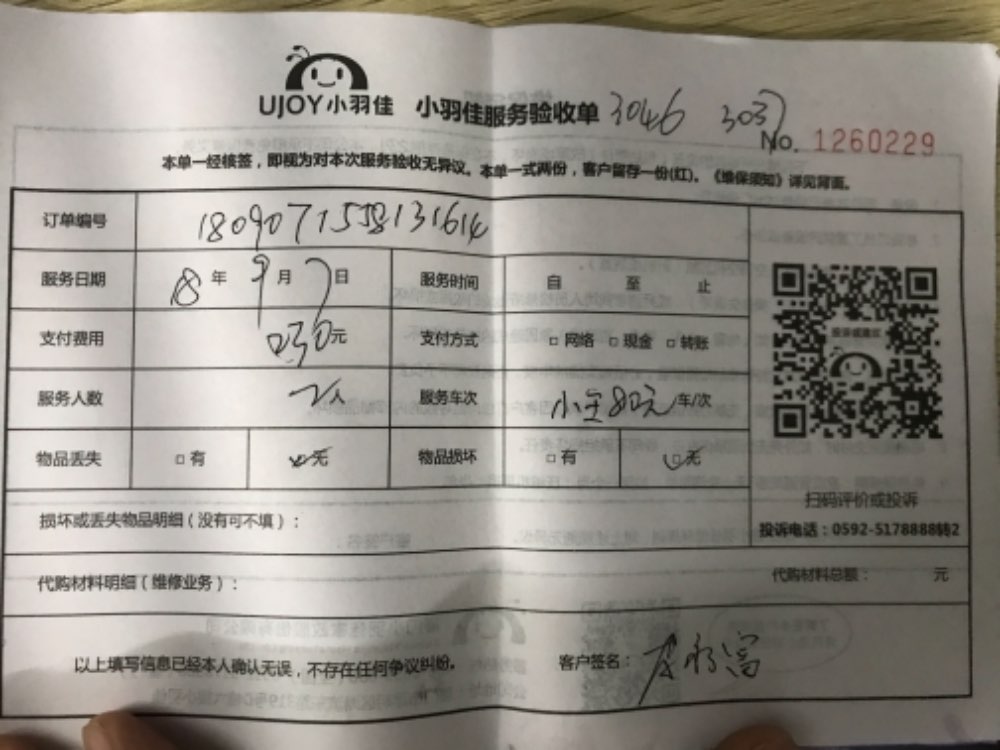 UJOY小羽佳 小羽佳服务验收单 3046 3037
No. 1260229
本单一经核签，即视为对本次服务验收无异议。本单一式两份，客户留存一份(红)。《维保须知》详见背面。
订单编号 1809071558131614
服务日期 18年9月7日 服务时间 自 至 止
支付费用 元 支付方式 □网络 □现金 □转账
服务人数 2人 服务车次 80元车/次
物品丢失 □有 ☑无 物品损坏 □有 ☑无
扫码评价或投诉
投诉电话：0592-5178888转2
损坏或丢失物品明细（没有可不填）：
代购材料明细（维修业务）： 代购材料总额： 元
以上填写信息已经本人确认无误，不存在任何争议纠纷。 客户签名：